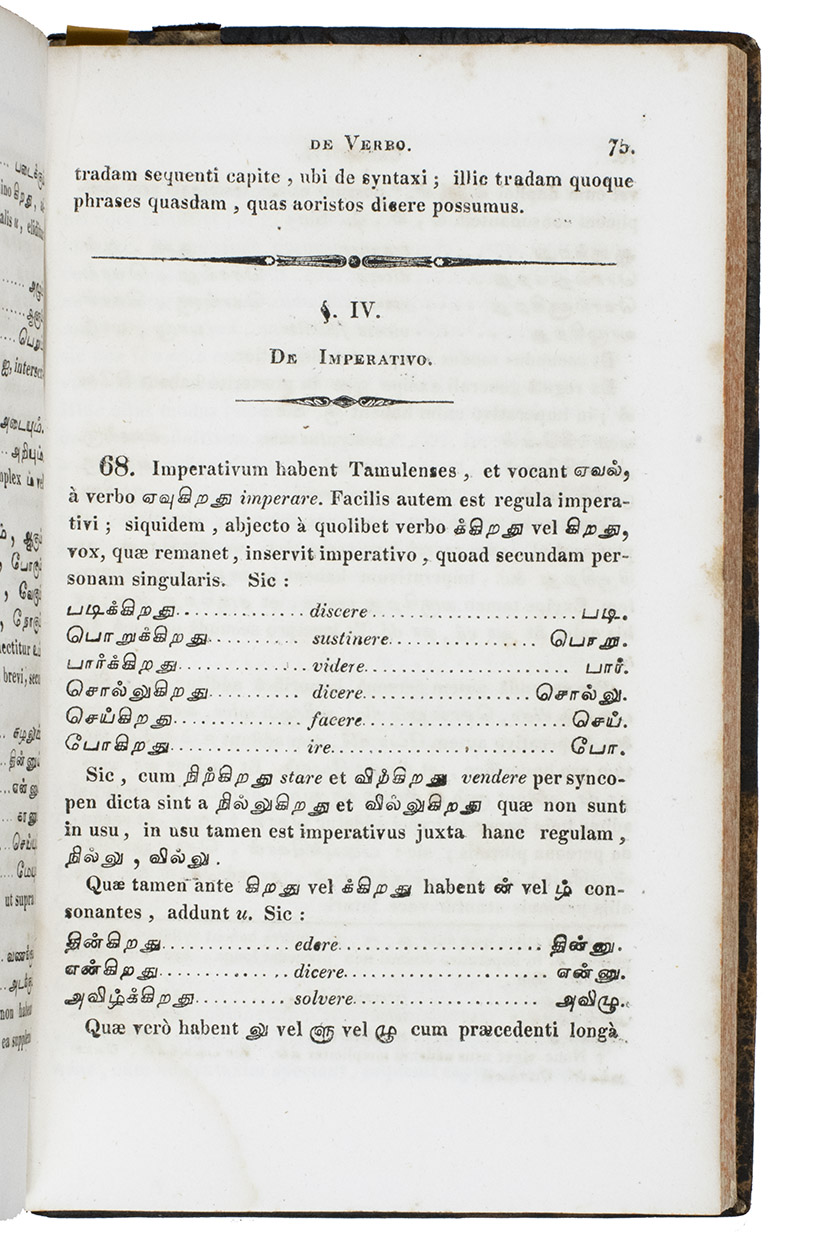 DE VERBO. 75.
tradam sequenti capite , ubi de syntaxi ; illic tradam quoque
phrases quasdam , quas aoristos dicere possumus.
§. IV.
DE IMPERATIVO.
68. Imperativum habent Tamulenses , et vocant எவல்,
à verbo எவுகிறது imperare. Facilis autem est regula impera-
tivi ; siquidem , abjecto à quolibet verbo க்கிறது vel கிறது,
vox, quæ remanet, inservit imperativo , quoad secundam per-
sonam singularis. Sic :
படிக்கிறது............... discere ...................... படி.
பொறுக்கிறது.......... sustinere................ பொறு.
பார்க்கிறது............... videre..................... பார்.
சொல்லுகிறது.......... dicere ................... சொல்லு.
செய்கிறது................ facere..................... செய்.
போகிறது................. ire.......................... போ.
Sic , cum நிற்கிறது stare et விற்கிறது vendere per synco-
pen dicta sint a நில்லுகிறது et வில்லுகிறது quæ non sunt
in usu, in usu tamen est imperativus juxta hanc regulam ,
நில்லு , வில்லு .
Quæ tamen ante கிறது vel க்கிறது habent ன் vel ழ் con-
sonantes , addunt u. Sic :
தின்கிறது................. edere..................... தின்னு.
என்கிறது................. dicere..................... என்னு.
அவிழ்க்கிறது.......... solvere................... அவிழு.
Quæ verò habent லு vel ளு vel ழு cum præcedenti longà
... படைக்கு
alis u, elidit
ஐ, interser
அடையும்.
..அறியும்
nplex ம் vel
ut supra